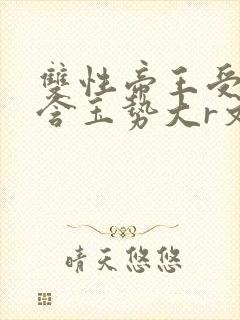 雙性帝王受
含玉勢大r文
晴天悠悠